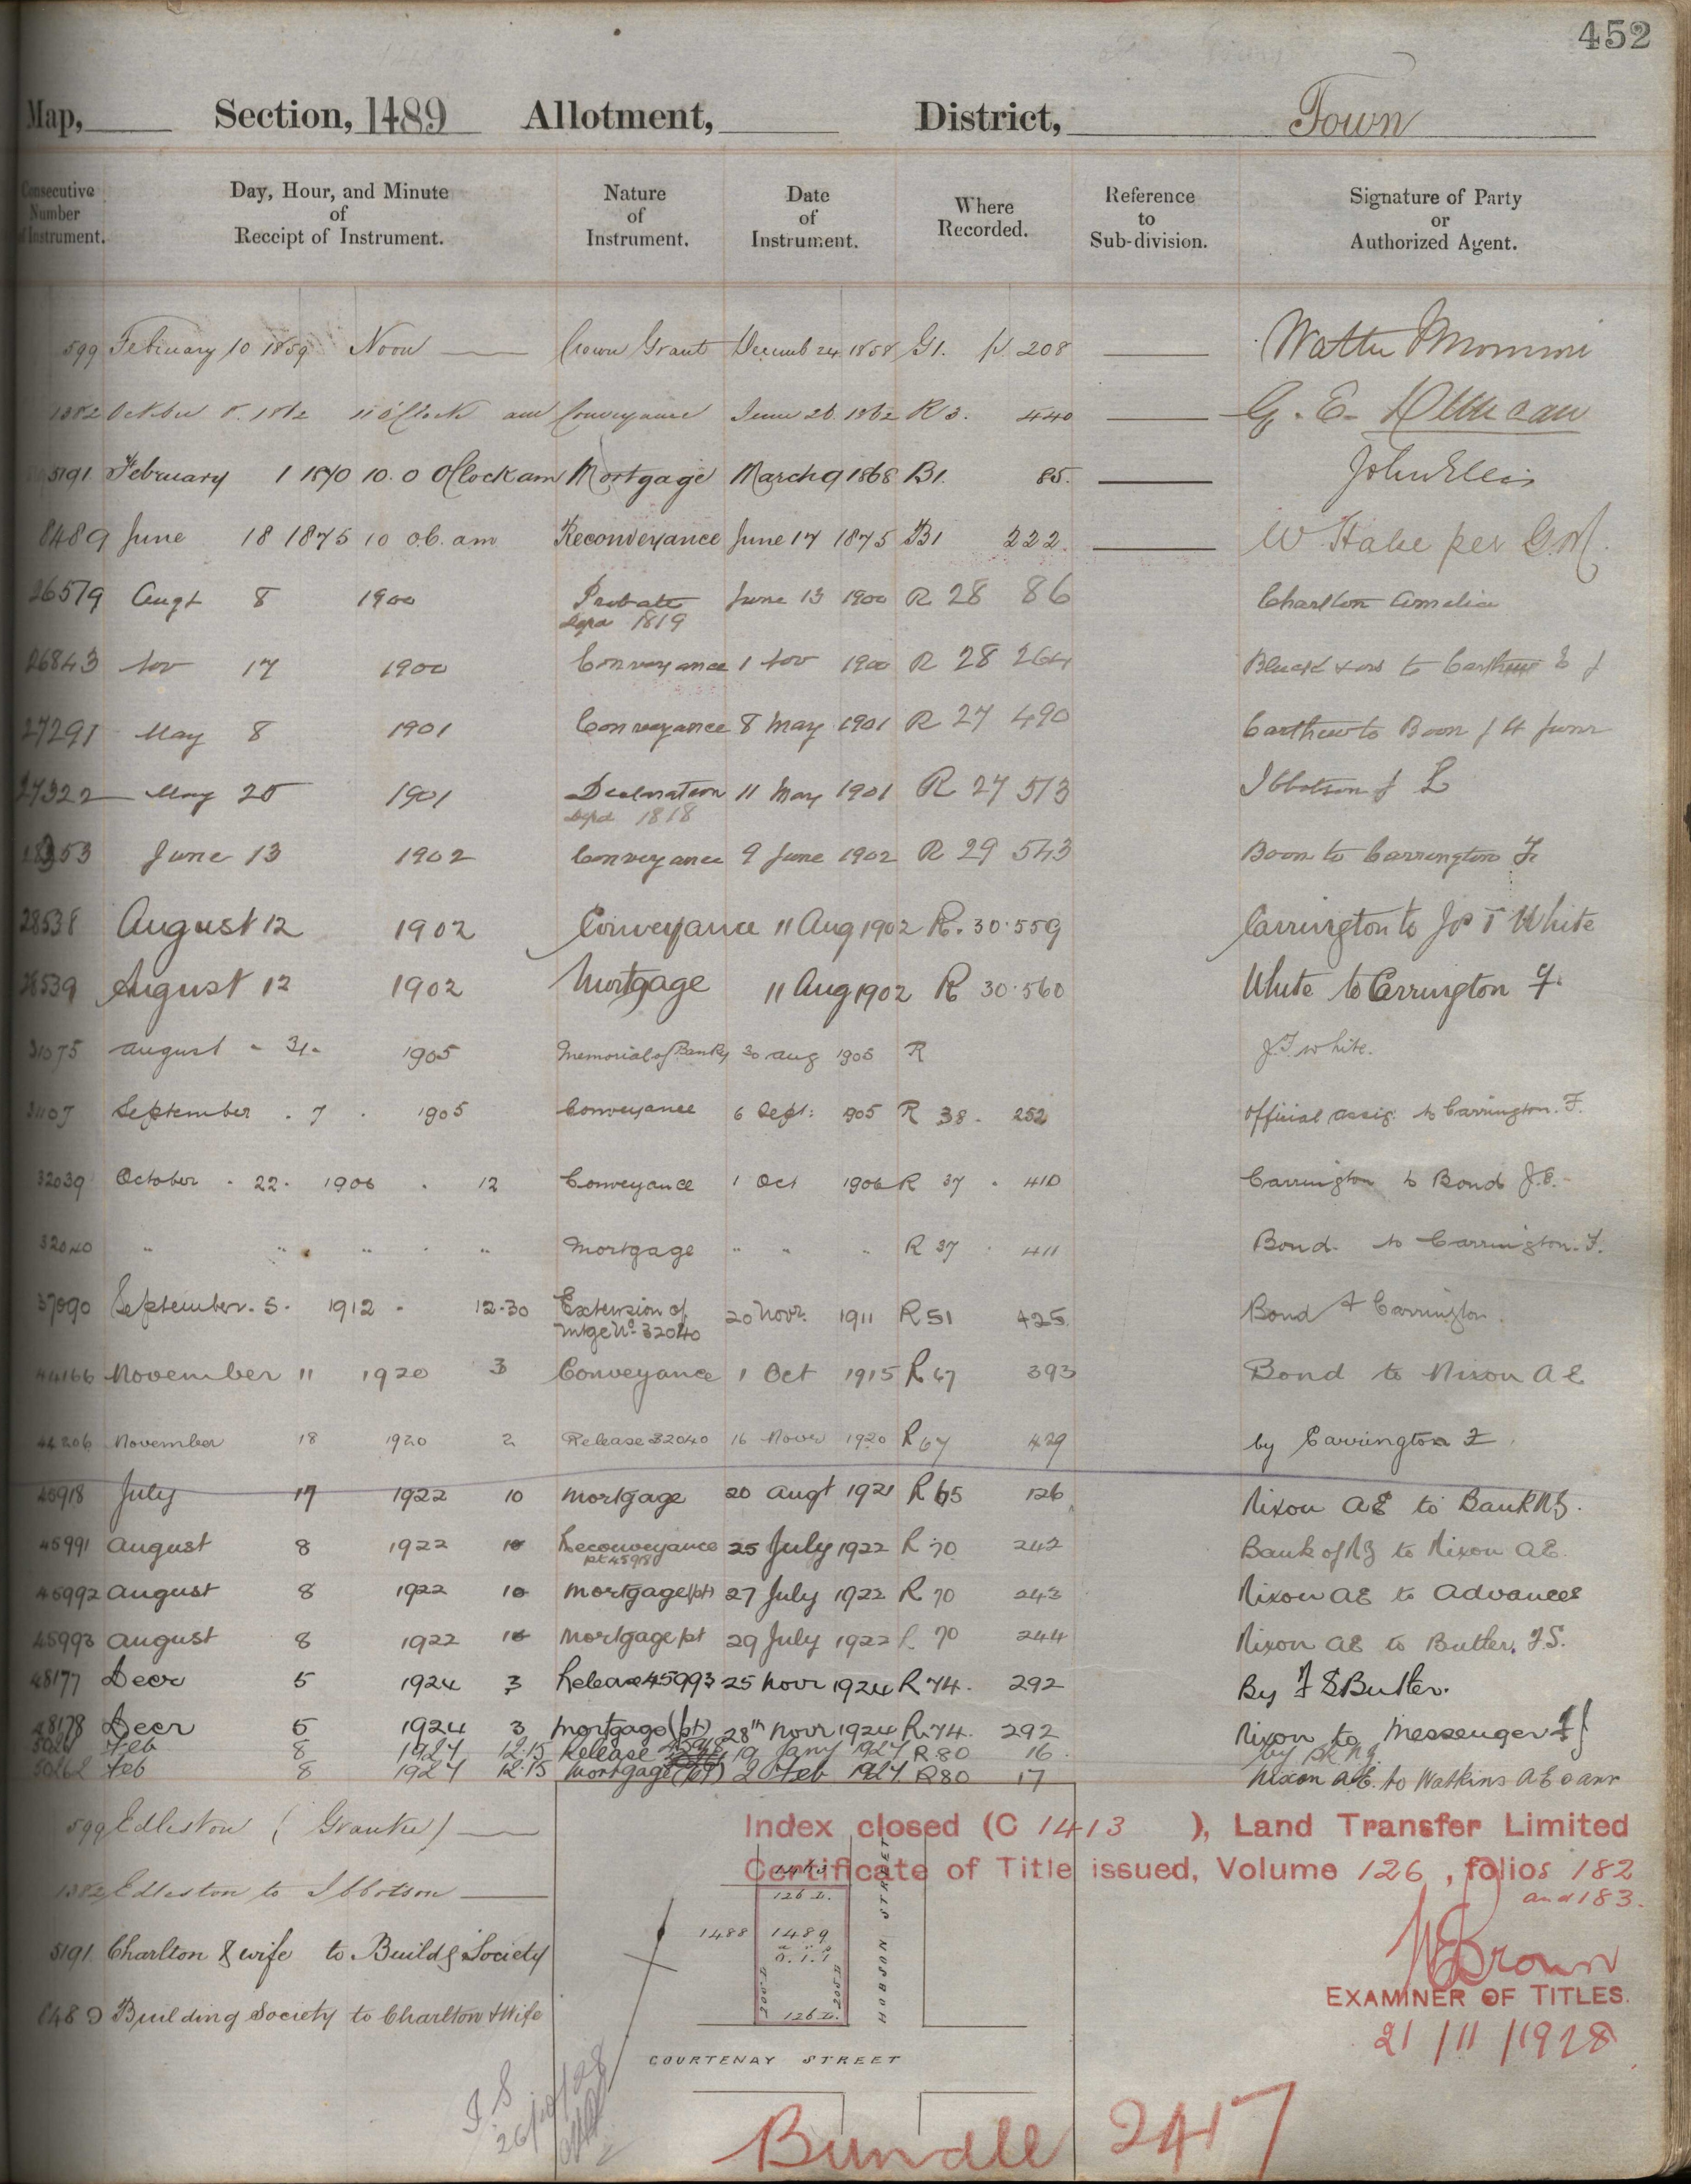 452
Map, Section, 1489 Allotment, District, Town
Consecutive Number of Instrument. Day, Hour, and Minute of Receipt of Instrument. Nature of Instrument. Date of Instrument. Where Recorded. Reference to Sub-division. Signature of Party or Authorized Agent.
599 February 10 1859 Noon Crown Grant Decemb 24 1858 G1. 208 Walter
1382 October 8. 1862 11 o'Clock am Conveyance June 26. 1862 R 3. 440 G. E.
5191 February 1 1870 10. 0 OClock am Mortgage March 9 1868 B1. 85. John Ellis
8489 June 18 1875 10 o.c. am Reconveyance June 17 1875 B1 222. W Hale per
26579 Augt 8 1900 Probate June 13 1900 R 28 86 Charlton Amelia
Depd 1819
26843 Nov 17 1900 Conveyance 1 Nov 1900 R 28 264 to Carthew E J
27291 May 8 1901 Conveyance 8 May 1901 R 27 490 Carthew to Boon J H Junr
27322 May 20 1901 Declaration 11 May 1901 R 27 513 Ibbotson J L
Depd 1818
28353 June 13 1902 Conveyance 9 June 1902 R 29 543 Boon to Carrington F
28538 August 12 1902 Conveyance 11 Aug 1902 R. 30.559 Carrington to Js T White
28539 August 12 1902 Mortgage 11 Aug 1902 R 30.560 White to Carrington F.
31075 August - 31 - 1905 Memorial of Banky 30 Aug 1905 R J.T. White.
31107 September . 7 . 1905 Conveyance 6 Sept: 1905 R 38 - 252 Official assig. to Carrington. F.
32039 October - 22 - 1906 . 12 Conveyance 1 Oct 1906 R 37 . 410 Carrington to Bond J.E.
32040 " " " " Mortgage " " " R 37 . 411 Bond to Carrington. F.
37090 September. 5. 1912 - 12-30 Extension of 20 Novr. 1911 R 51 425 Bond & Carrington.
Mtge No 32040
44166 November 11 1920 3 Conveyance 1 Oct 1915 R 67 393 Bond to Nixon A E
44206 November 18 1920 2 Release 32040 16 Novr 1920 R 67 429 by Carrington F
45918 July 17 1922 10 Mortgage 20 Augt 1921 R 65 126 Nixon A E to Bank NZ.
45991 August 8 1922 10 Reconveyance 25 July 1922 R 70 242 Bank of NZ to Nixon A E.
pt 45918
45992 August 8 1922 10 Mortgage (pt) 27 July 1922 R 70 243 Nixon A E to Advances
45993 August 8 1922 10 Mortgage pt 29 July 1922 R 70 244 Nixon A E to Butler, F.S.
48177 Decr 5 1924 3 Release 45993 25 Novr 1924 R 74. 292 By F S Butler.
48178 Decr 5 1924 3 Mortgage (pt) 28th Novr 1924 R. 74. 292 Nixon to Messenger
Feb 8 1927 12.15 Release 45918 19 Jany 1927 R 80 16. by Bk NZ
50262 Feb 8 1927 12.15 Mortgage (pt) 2 Feb 1927 R 80 17 Nixon A E. to Watkins A E & anr
599 Edleston (Grantee)
1382 Edleston to Ibbotson
5191. Charlton & wife to Buildg Society
8489 Building Society to Charlton & Wife
Index closed (C 1413 ), Land Transfer Limited
Certificate of Title issued, Volume 126, folios 182
and 183.
126 L.
1488 1489
0.1.1
200 L
200 L
126 L.
HOBSON STREET
COURTENAY STREET
Brown
EXAMINER OF TITLES.
21/11/1928
26/10/28
Bundle 2417